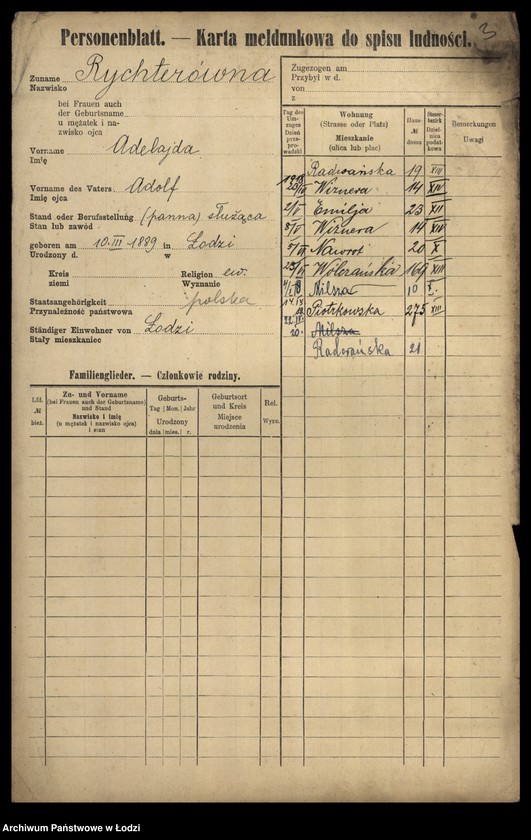 3
Personenblatt. — Karta meldunkowa do spisu ludności.
Zuname Rychterówna
Nazwisko
bei Frauen auch
der Geburtsname
u mężatek i na-
zwisko ojca
Vorname Adelajda
Imię
Vorname des Vaters Adolf
Imię ojca
Stand oder Berufsstellung (panna) służąca
Stan lub zawód
geboren am 10.III 1889 in Łodzi
Urodzony d. w
Kreis Religion ew.
ziemi Wyznanie
Staatsangehörigkeit polska
Przynależność państwowa
Ständiger Einwohner von Łodzi
Stały mieszkaniec
Zugezogen am
Przybył w d.
von
z
Tag des Um-zuges Dzień prze-prowadzki
Wohnung (Strasse oder Platz) Mieszkanie (ulica lub plac)
Haus- № domu
Steuer-bezirk Dziel-nica podat-kowa
Bemerkungen Uwagi
Radwańska 19 XIII
Wiznera 14 XIV
2/V Emilja 23 XII
8/V Wiznera 14 XIV
Nawrot 20 X
Wólczańska 169 XIII
Milsza 10 X.
Piotrkowska 275 XIII
Milsza
Radwańska 21
Familienglieder. — Członkowie rodziny.
Lfd. № bież.
Zu- und Vorname (bei Frauen auch der Geburtsname) und Stand Nazwisko i imię (u mężatek i nazwisko ojca) i stan
Geburts- Tag | Mon. | Jahr Urodzony dnia | mies. | r.
Geburtsort und Kreis Miejsce urodzenia
Rel. Wyzn.
Archiwum Państwowe w Łodzi